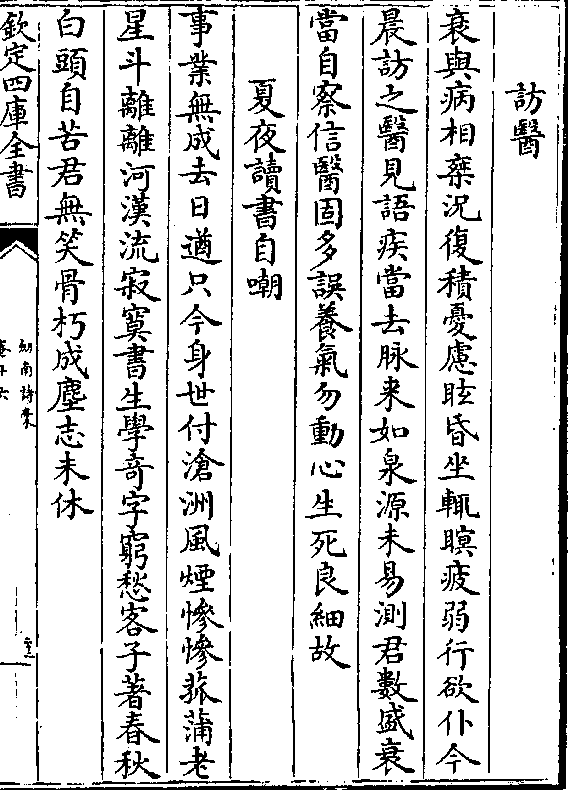 訪醫
衰與病相乗況復積憂慮眩昏坐輒瞑疲弱行欲仆今
晨訪之醫見語疾當去脉来如泉源未易測君數盛衰
當自察信醫固多誤養氣勿動心生死良細故
夏夜讀書自嘲
事業無成去日遒只今身世付滄洲風煙慘慘菰蒲老
星斗離離河漢流寂寞書生學竒字窮愁客子著春秋
白頭自苦君無笑骨朽成塵志未休
欽定四庫全書
劒南詩稾